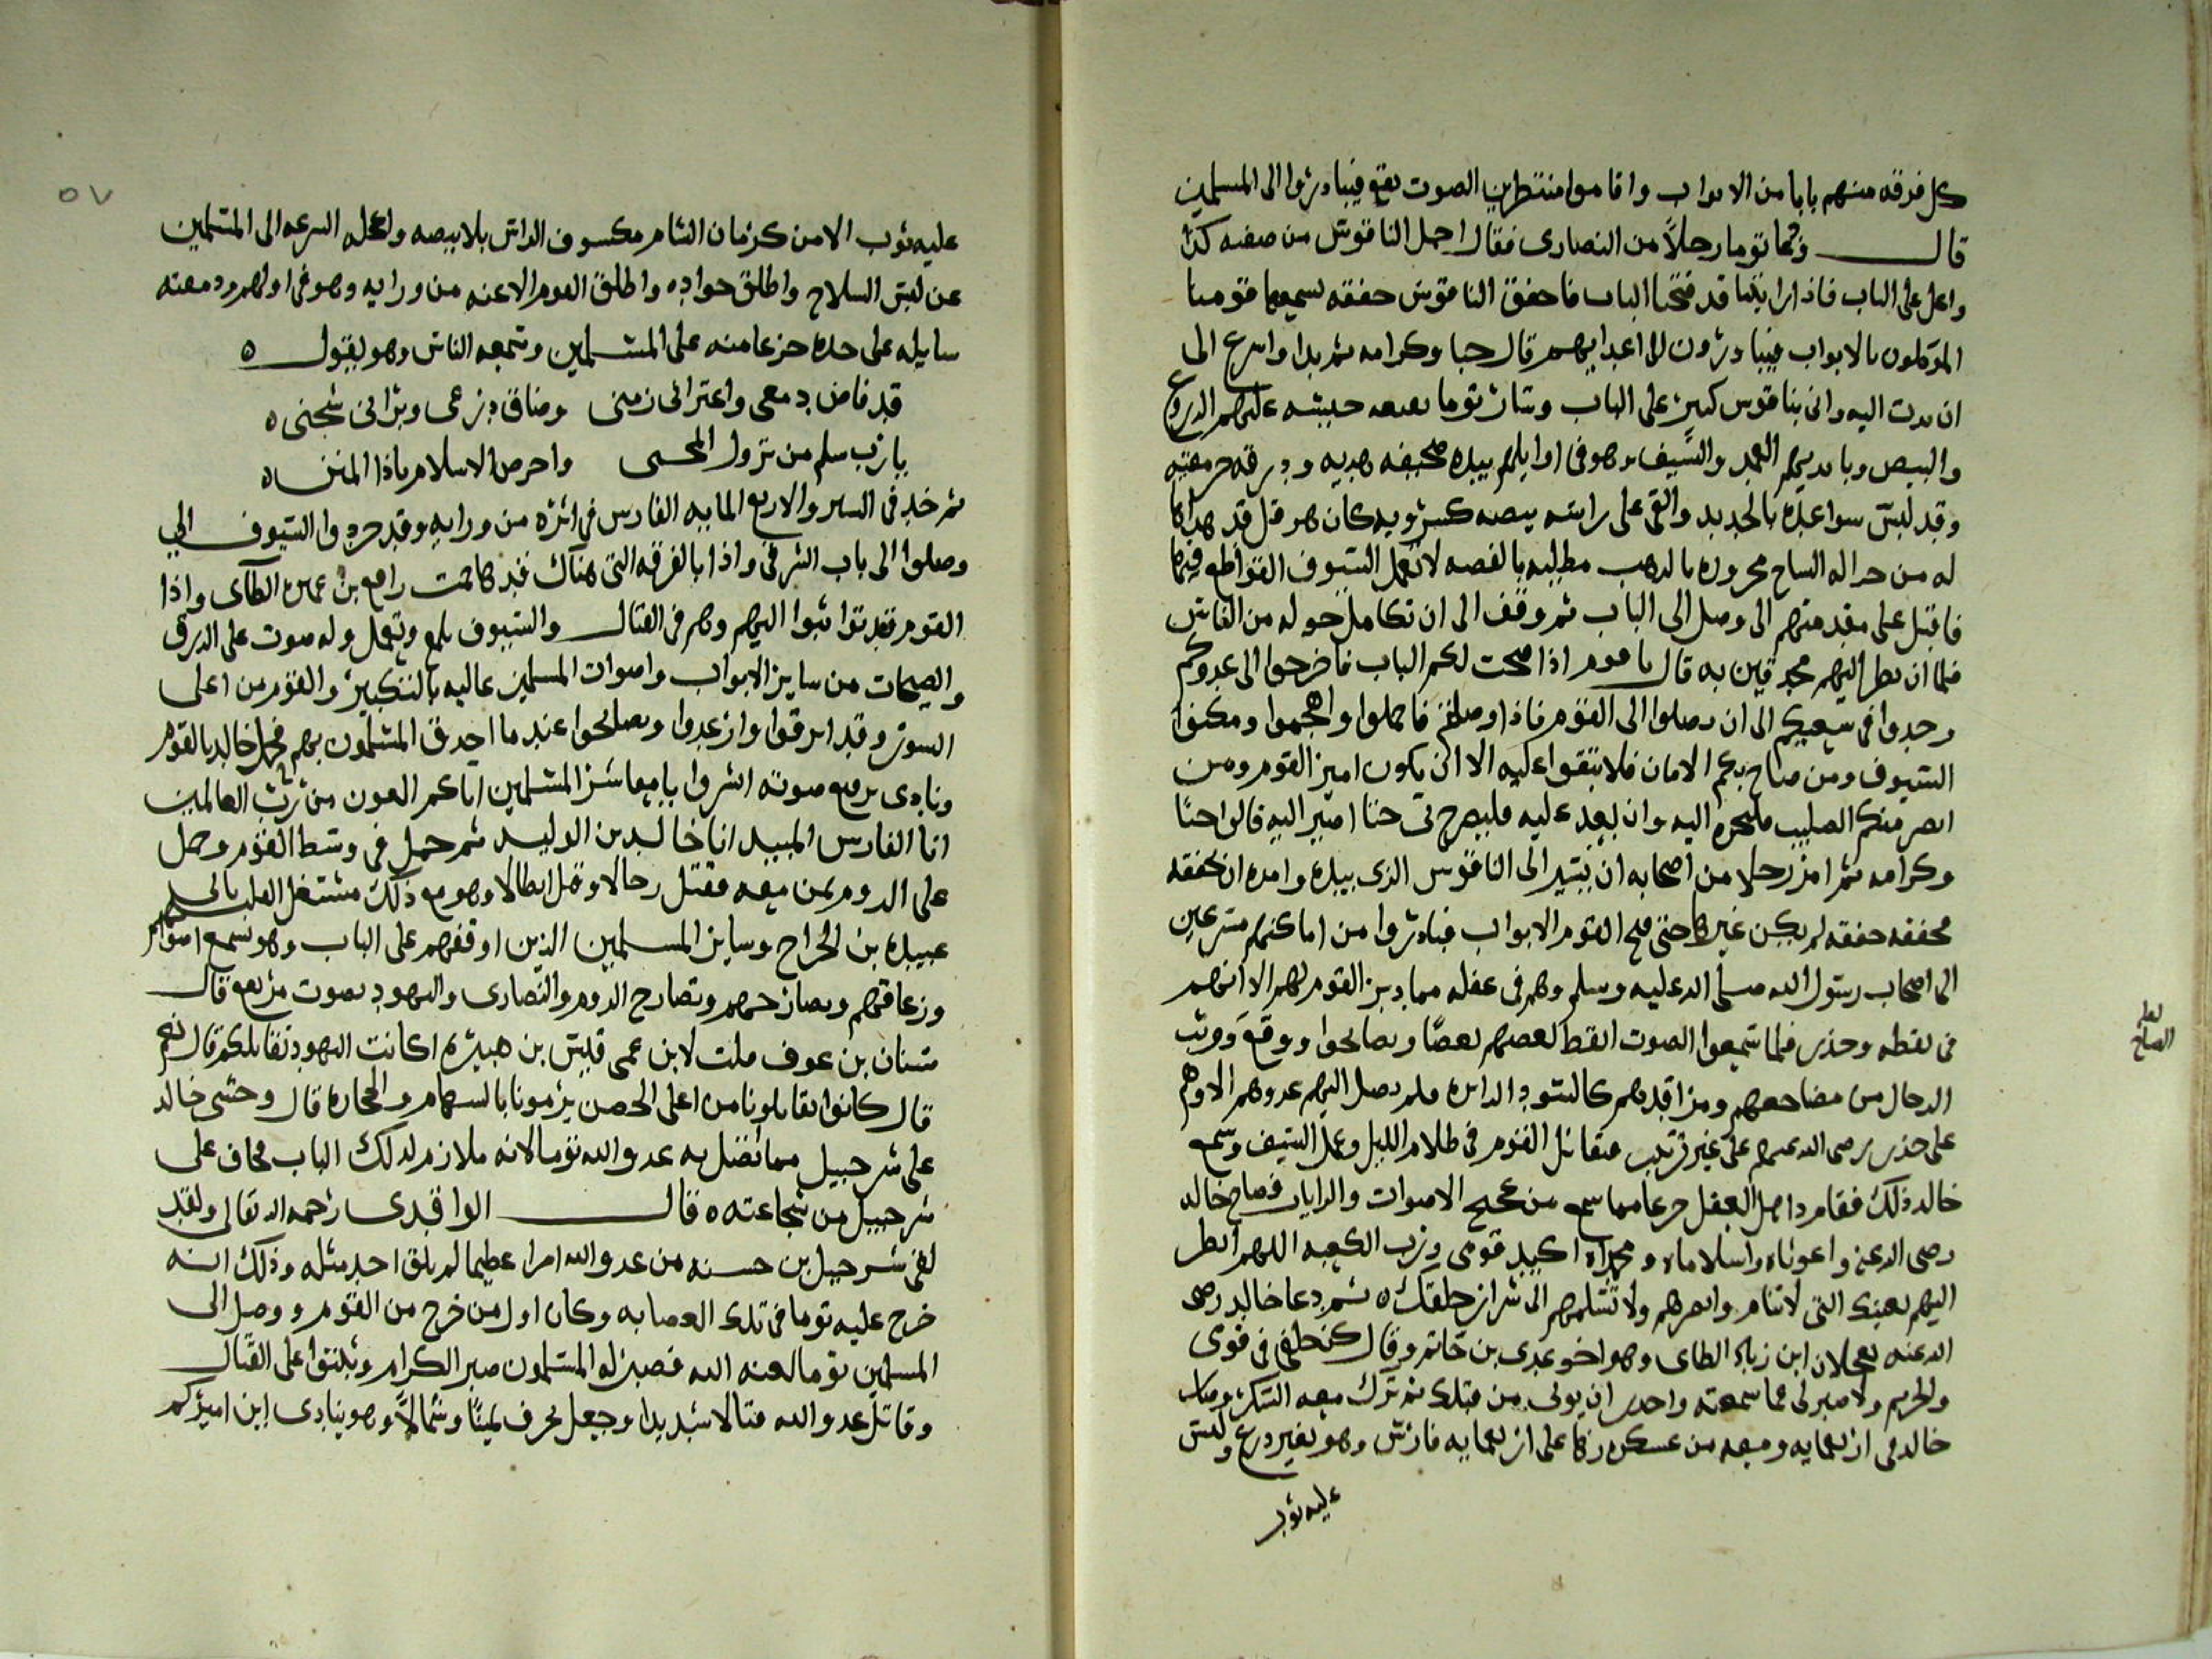 كل فرقه منهم بابا من الابواب واقاموا منتظرين الصوت يقع فيبادروا الى المسلمين
قال ودعا توما رجلاً من النصارى فقال احمل الناقوس من صفته كذا
واعل على الباب فاذا رايتنا قد فتحنا الباب فاخفق الناقوس خفقه يسمعها قومنا
الموكلون بالابواب فيبادرون الى اعدايهم قال حبا وكرامه ثم بدا واسرع الى
ان بدت اليه واتى بناقوس كبير على الباب وسار توما معه حبيشه عليهم الدروع
والبيض وبايديهم العمد والسيف وهو فى اوايلهم بيده صحيفه هديه ودرقه
وقد لبس سواعده بالحديد والقى على راسه بيضه كسرويه كان هرقل قد هداها
له من خزاله مطليه بالفضه لا تعمل السيوف القواطع فيها
فاقبل على مقدمتهم الى وصل الى الباب ثم وقف الى ان تكامل حوله من الناس
فلما ان نظر اليهم محدقين به قال يا قوم اذا فتحت لكم الباب فاخرجوا الى عدوكم
وجدوا فى سعيكم الى ان تصلوا الى القوم فاذا وصلتم فاحملوا واهجموا ومكنوا
السيوف ومن صاح بكم الامان فلا تبقوا عليه الا ان يكون امير القوم ومن
ابصر منكم الصليب اليه وان بعد عليه فليصرخ بى حتا اسير اليه قالوا حبًا
وكرامه ثم امر رجلا من اصحابه ان يسير الى الناقوس الذى بيده وامره ان يخفقه
فخفقه خفقه لم يكن غيرها حتى فتح القوم الابواب فبادروا من اماكنهم مسرعين
الى اصحاب رسول الله صلى الله عليه وسلم وهم فى غفله مما دبر القوم لهم الا انهم
فى يقظه وحذر فلما سمعوا الصوت ايقظ بعضهم بعضًا وتصايحوا ووقع وثب
الرجال من مضاجعهم ومراقدهم كالاسود الدايره فلم يصل اليهم عدوهم الا وهم
على حذر رضى الله عنهم على غير ترتيب فتقاتل القوم فى ظلام الليل وعمل السيف وسمع
خالد ذلك فقام ذاهل العقل جزعا مما سمع من عجيج الاصوات والرايات فصاح خالد
رضى الله عنه واغوثاه واسلاماه ومحمداه اكيد قومى ورب الكعبه اللهم انظر
اليهم بعينك التى لا تنام وانصرهم ولا تسلمهم الى شرار خلقك ه ثم دعا خالد رضى
الله عنه بعجلان ابن زياد الطاى وهو اخو عدى بن حاتم وقال كن خلفى فى قومى
والحريم ولا صبر لى عما سمعته واحذر ان يوتى من قبلك ثم ترك معه العسكر وصار
خالد فى اربعمايه ومعه من عسكره زها على اربعمايه فارس وهو بغير درع ولبس
عليه ثوب
لعل
الصلح
٥٧
عليه ثوب الا من كرمان الشام مكسوف الراس بلا بيضه واعجله السرعه الى المسلمين
عن لبس السلاح واطلق جواده واطلق القوم الاعنه من ورايه وهو فى اولهم ودمعته
سايله على خده جزعا منه على المسلمين وسمعه الناس وهو يقول ه
قد فاض دمعى واعترانى زمنى وضاق ذرعى وبرانى شجنى ه
يا رب سلم من نزول المحن واحرص الاسلام ياذا المنن ه
ثم خد فى السير والاربع المايه الفارس فى اثره من ورايه وقد جردوا السيوف الي
وصلوا الى باب الشرقى واذا بالفرقه التى هناك قد كانت رافع بن عميره الطآى واذا
القوم قد تواثبوا اليهم وهم فى القتال والسيوف تلمع وتعمل وله صوت على الدرق
والصيحات من ساير الابواب واصوات المسلمين عاليه بالتكبير والقوم من اعلى
السور وقد ابرقوا وارعدوا وتصايحوا عند ما احدق المسلمون بهم فحمل خالد بالقوم
ونادى برفيع صوته ابشروا يا معاشر المسلمين اتاكم العون من رب العالمين
انا الفارس المبيد انا خالد بن الوليد ثم حمل فى وسط القوم وحمل
على الروم بمن معه فقتل رجالا وجدل ابطالا وهو مع ذلك مشتغل القلب بابى
عبيده بن الجراح وساير المسلمين الذين اوقفهم على الباب وهو يسمع اصواتهم
وزعاقهم وتصارخهم وتصارخ الروم والنصارى واليهود بصوت مزعج قال
سنان بن عوف قلت لابن عمى قيس بن هبيره اكانت اليهود تقاتلكم قال نعم
قال كانوا يقاتلونا من اعلى الحصن يرمونا بالسهام والحجاره قال وخشى خالد
على شرحبيل مما اتصل به عدو الله توما لانه ملازم لذلك الباب فخاف على
شرحبيل من شجاعته ه قال الواقدى رحمه الله تعالى ولقد
لقى شرحبيل بن حسنه من عدو الله امرا عظيما لم يلق احد مثله وذلك انه
خرج عليه توما فى تلك العصابه وكان اول من خرج من القوم ووصل الى
المسلمين توما لعنه الله فصبر له المسلمون صبر الكرام وثبتوا على القتال
وقاتل عدو الله قتالا شديدا وجعل يحرف يمينًا وشمالاً وهو ينادى اين اميركم